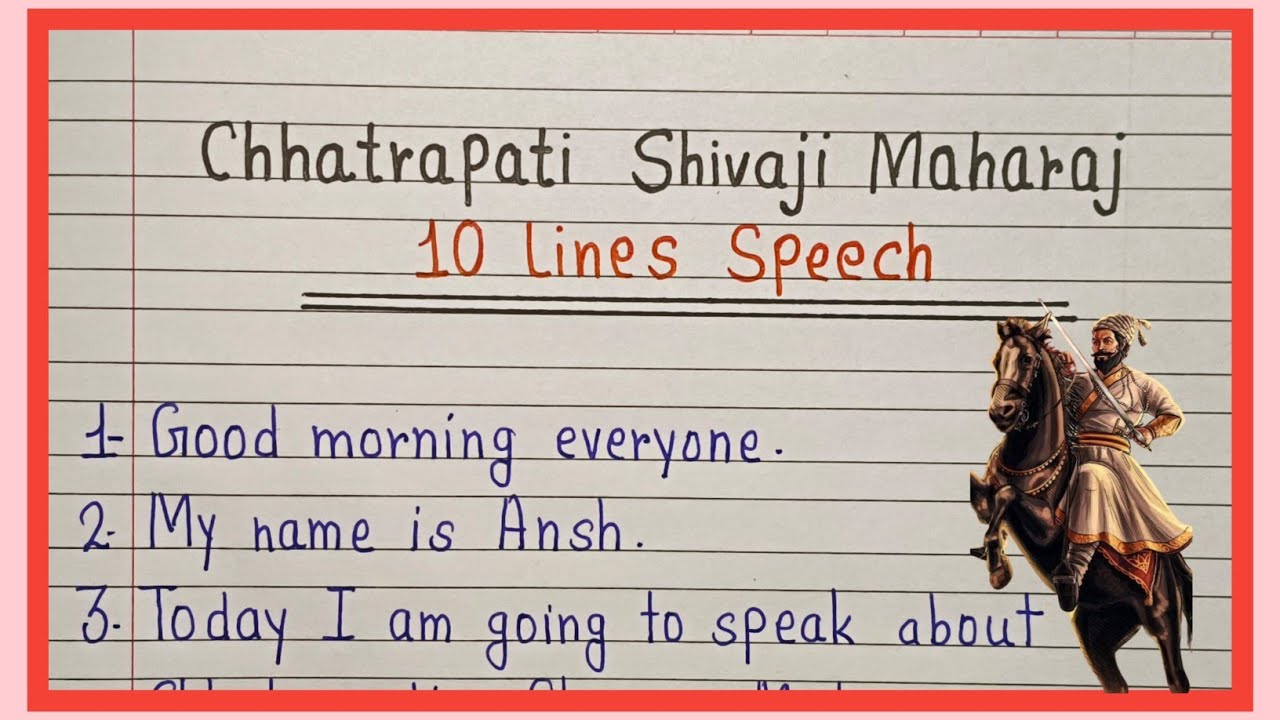 Chhatrapati Shivaji Maharaj
10 Lines Speech
1- Good morning everyone.
2- My name is Ansh.
3- Today I am going to speak about